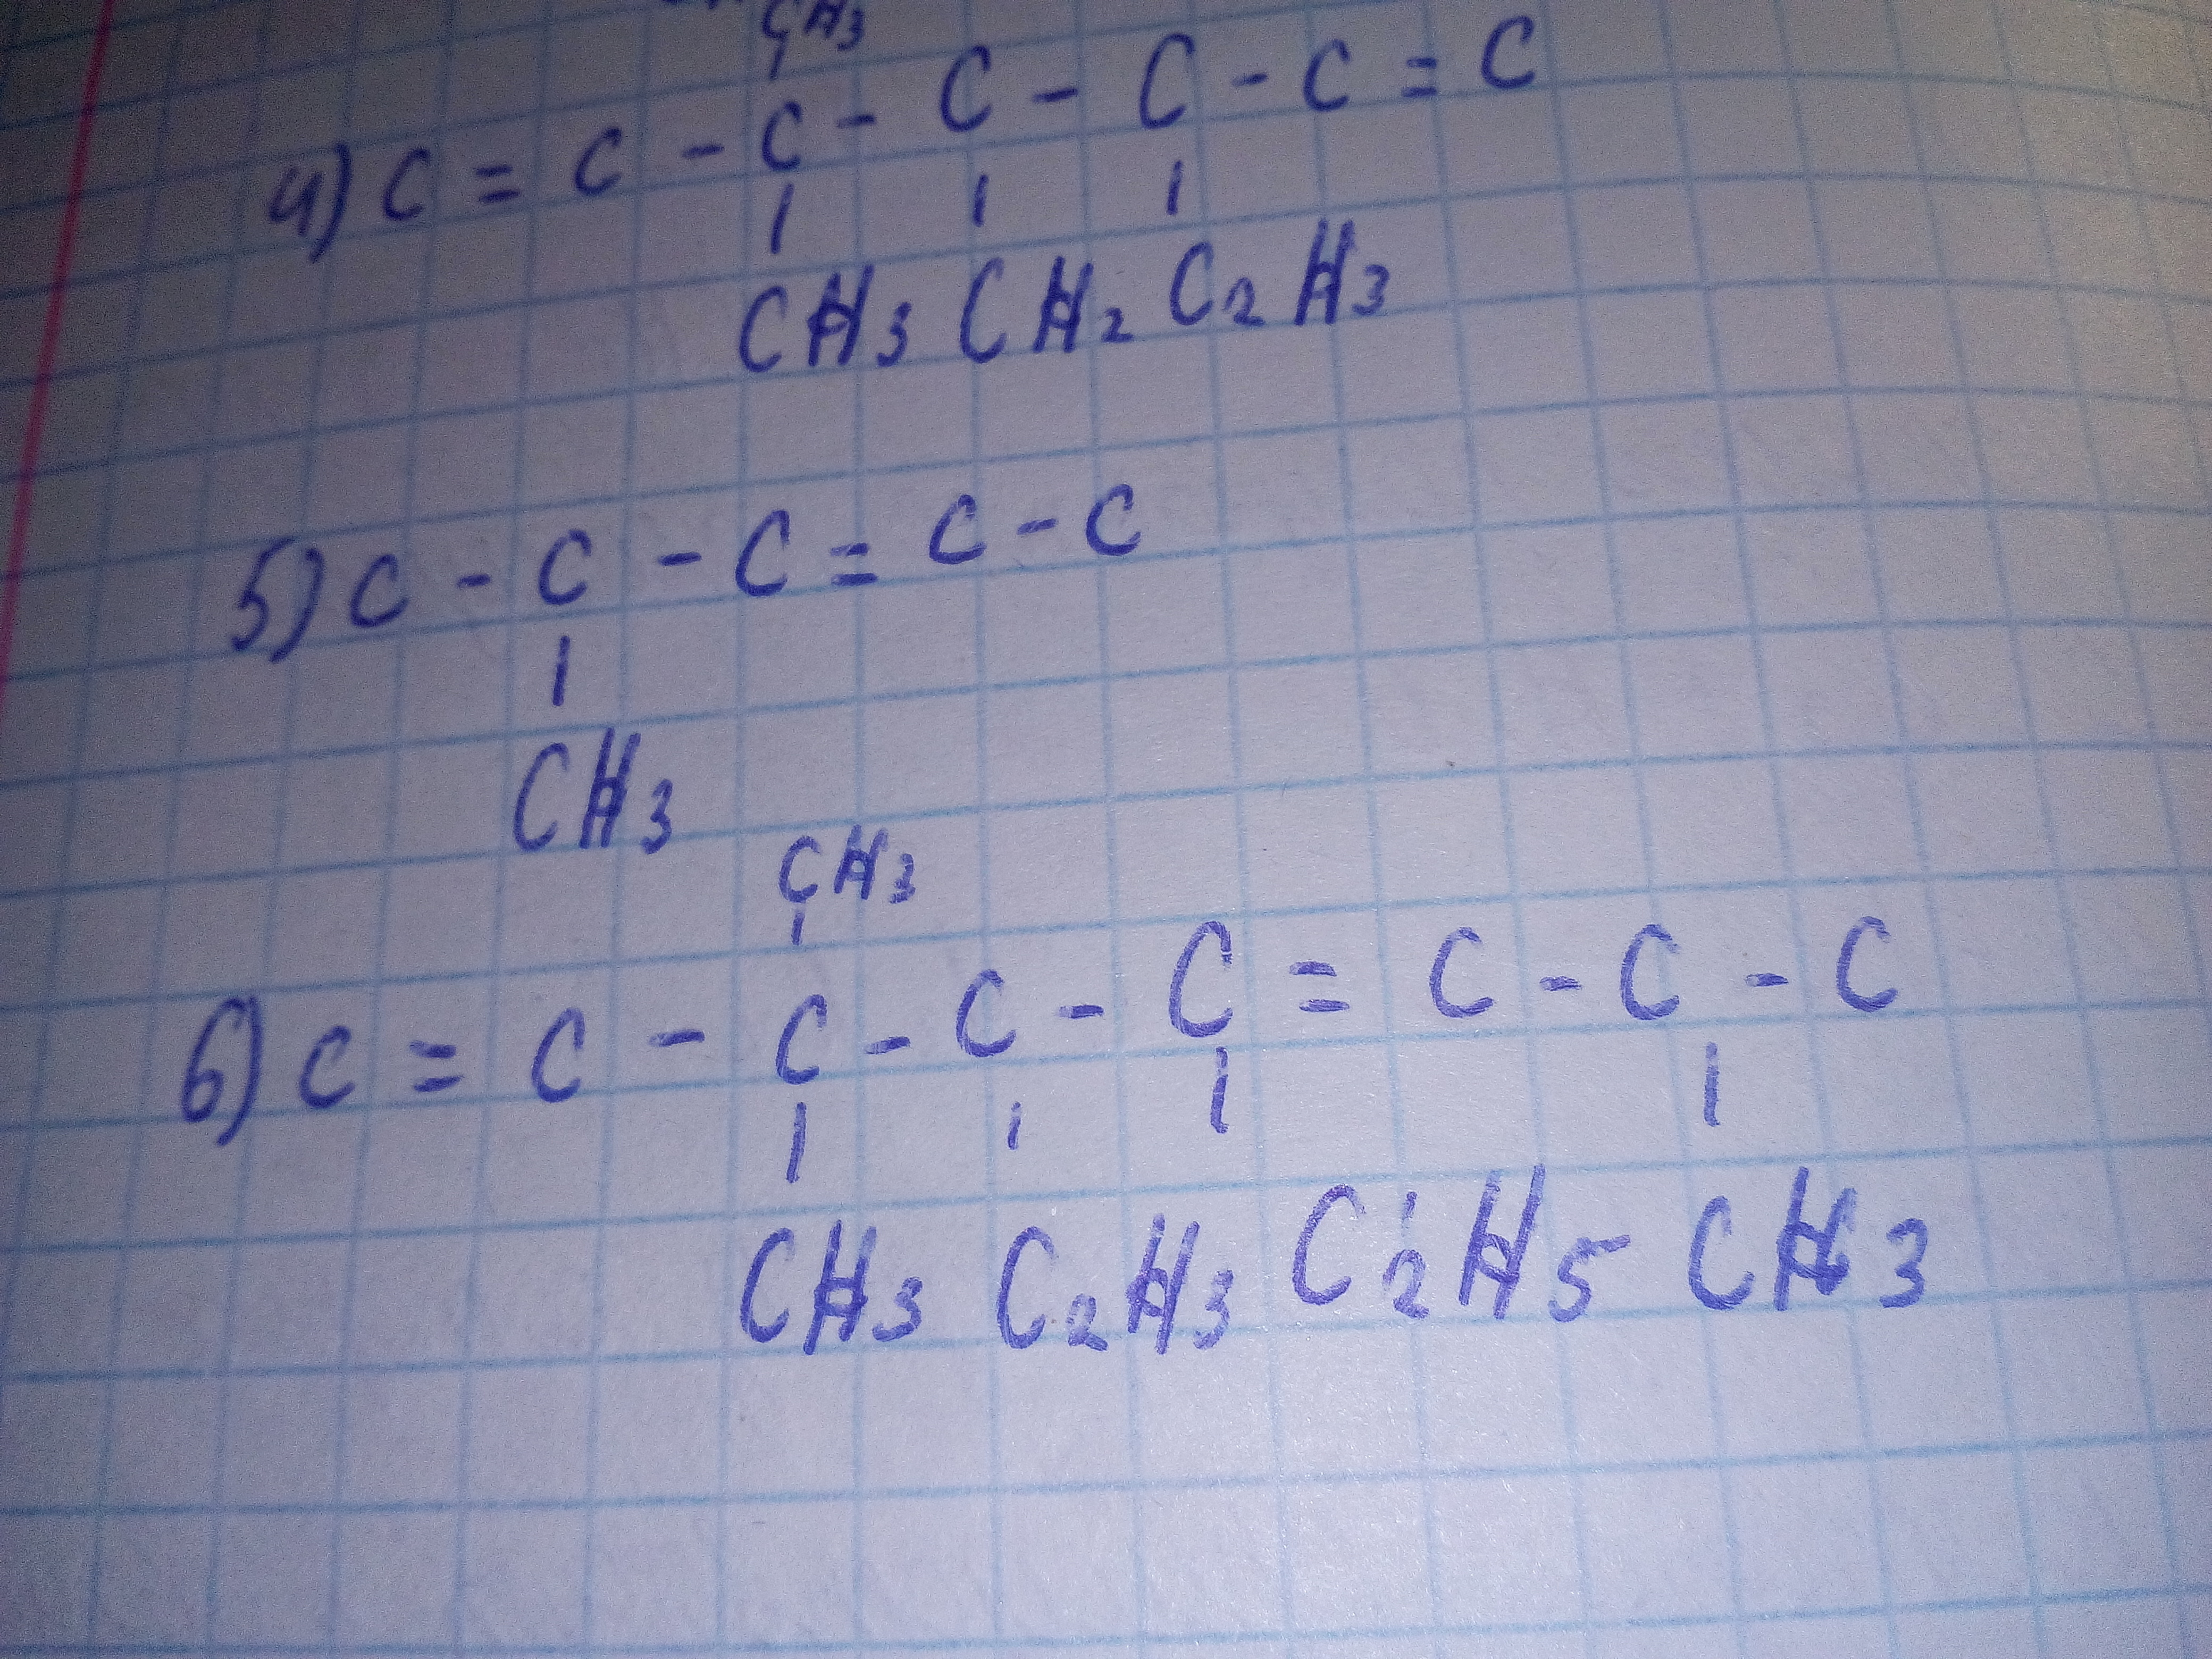 CH3
4) C = C - C - C - C - C = C
CH3 CH2 C2H3
5) C - C - C = C - C
CH3
CH3
6) C = C - C - C - C = C - C - C
CH3 C2H3 C2H5 CH3